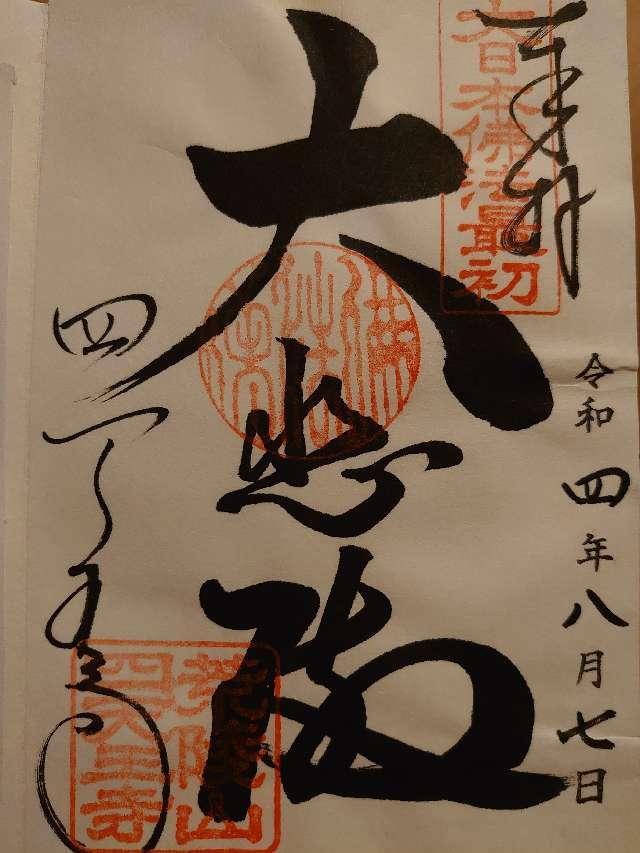 奉拝
大日本佛法最初
令和四年八月七日
大悲殿
佛法僧
四天王寺
荒陵山
四天王寺